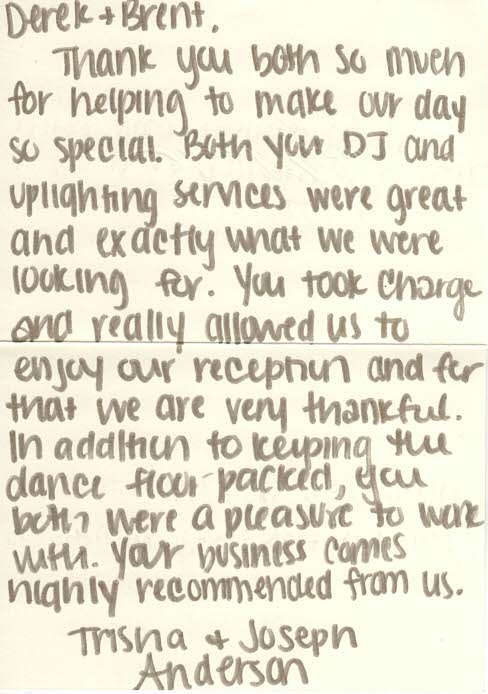 Derek + Brent,
Thank you both so much
for helping to make our day
so special. Both your DJ and
uplighting services were great
and exactly what we were
looking for. You took charge
and really allowed us to
enjoy our reception and for
that we are very thankful.
In addition to keeping the
dance floor packed, you
both were a pleasure to work
with. Your business comes
highly recommended from us.
Trisha + Joseph
Anderson